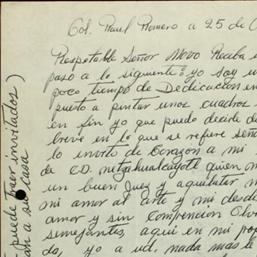 Col. Raul Romero a 25 de
Respetable Señor Novo Reciba
paso a lo siguiente: yo soy un
poco tiempo de Dedicacion en
puesto a pintar unos cuadros
en fin yo que puedo decir de
breve en lo que se refiere señ
lo invito de Corazon a mi
de CD. netzahualcoyotl quien m
un buen Juez y aquilatar m
mi amor al arte y mi desde
amor y sin Comprencion Olv
semejantes, aqui en mi po
do, yo a ud. nada mas le
puede traer invitados)
an a su casa